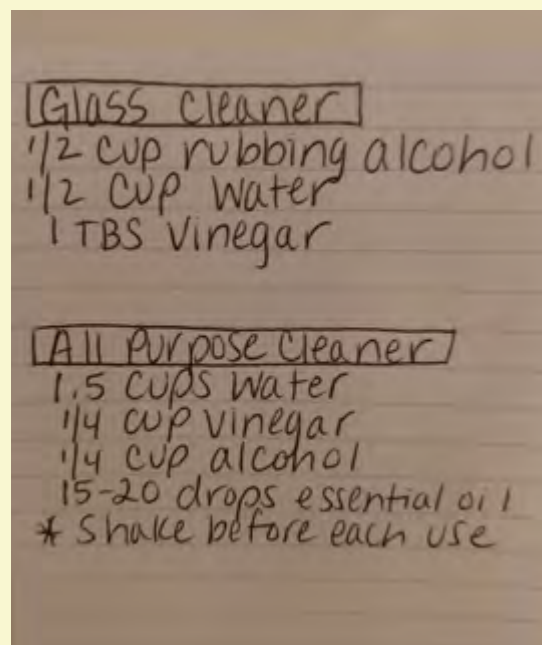 Glass cleaner
1/2 cup rubbing alcohol
1/2 cup water
1 TBS vinegar
All Purpose cleaner
1.5 cups water
1/4 cup vinegar
1/4 cup alcohol
15-20 drops essential oil
* Shake before each use